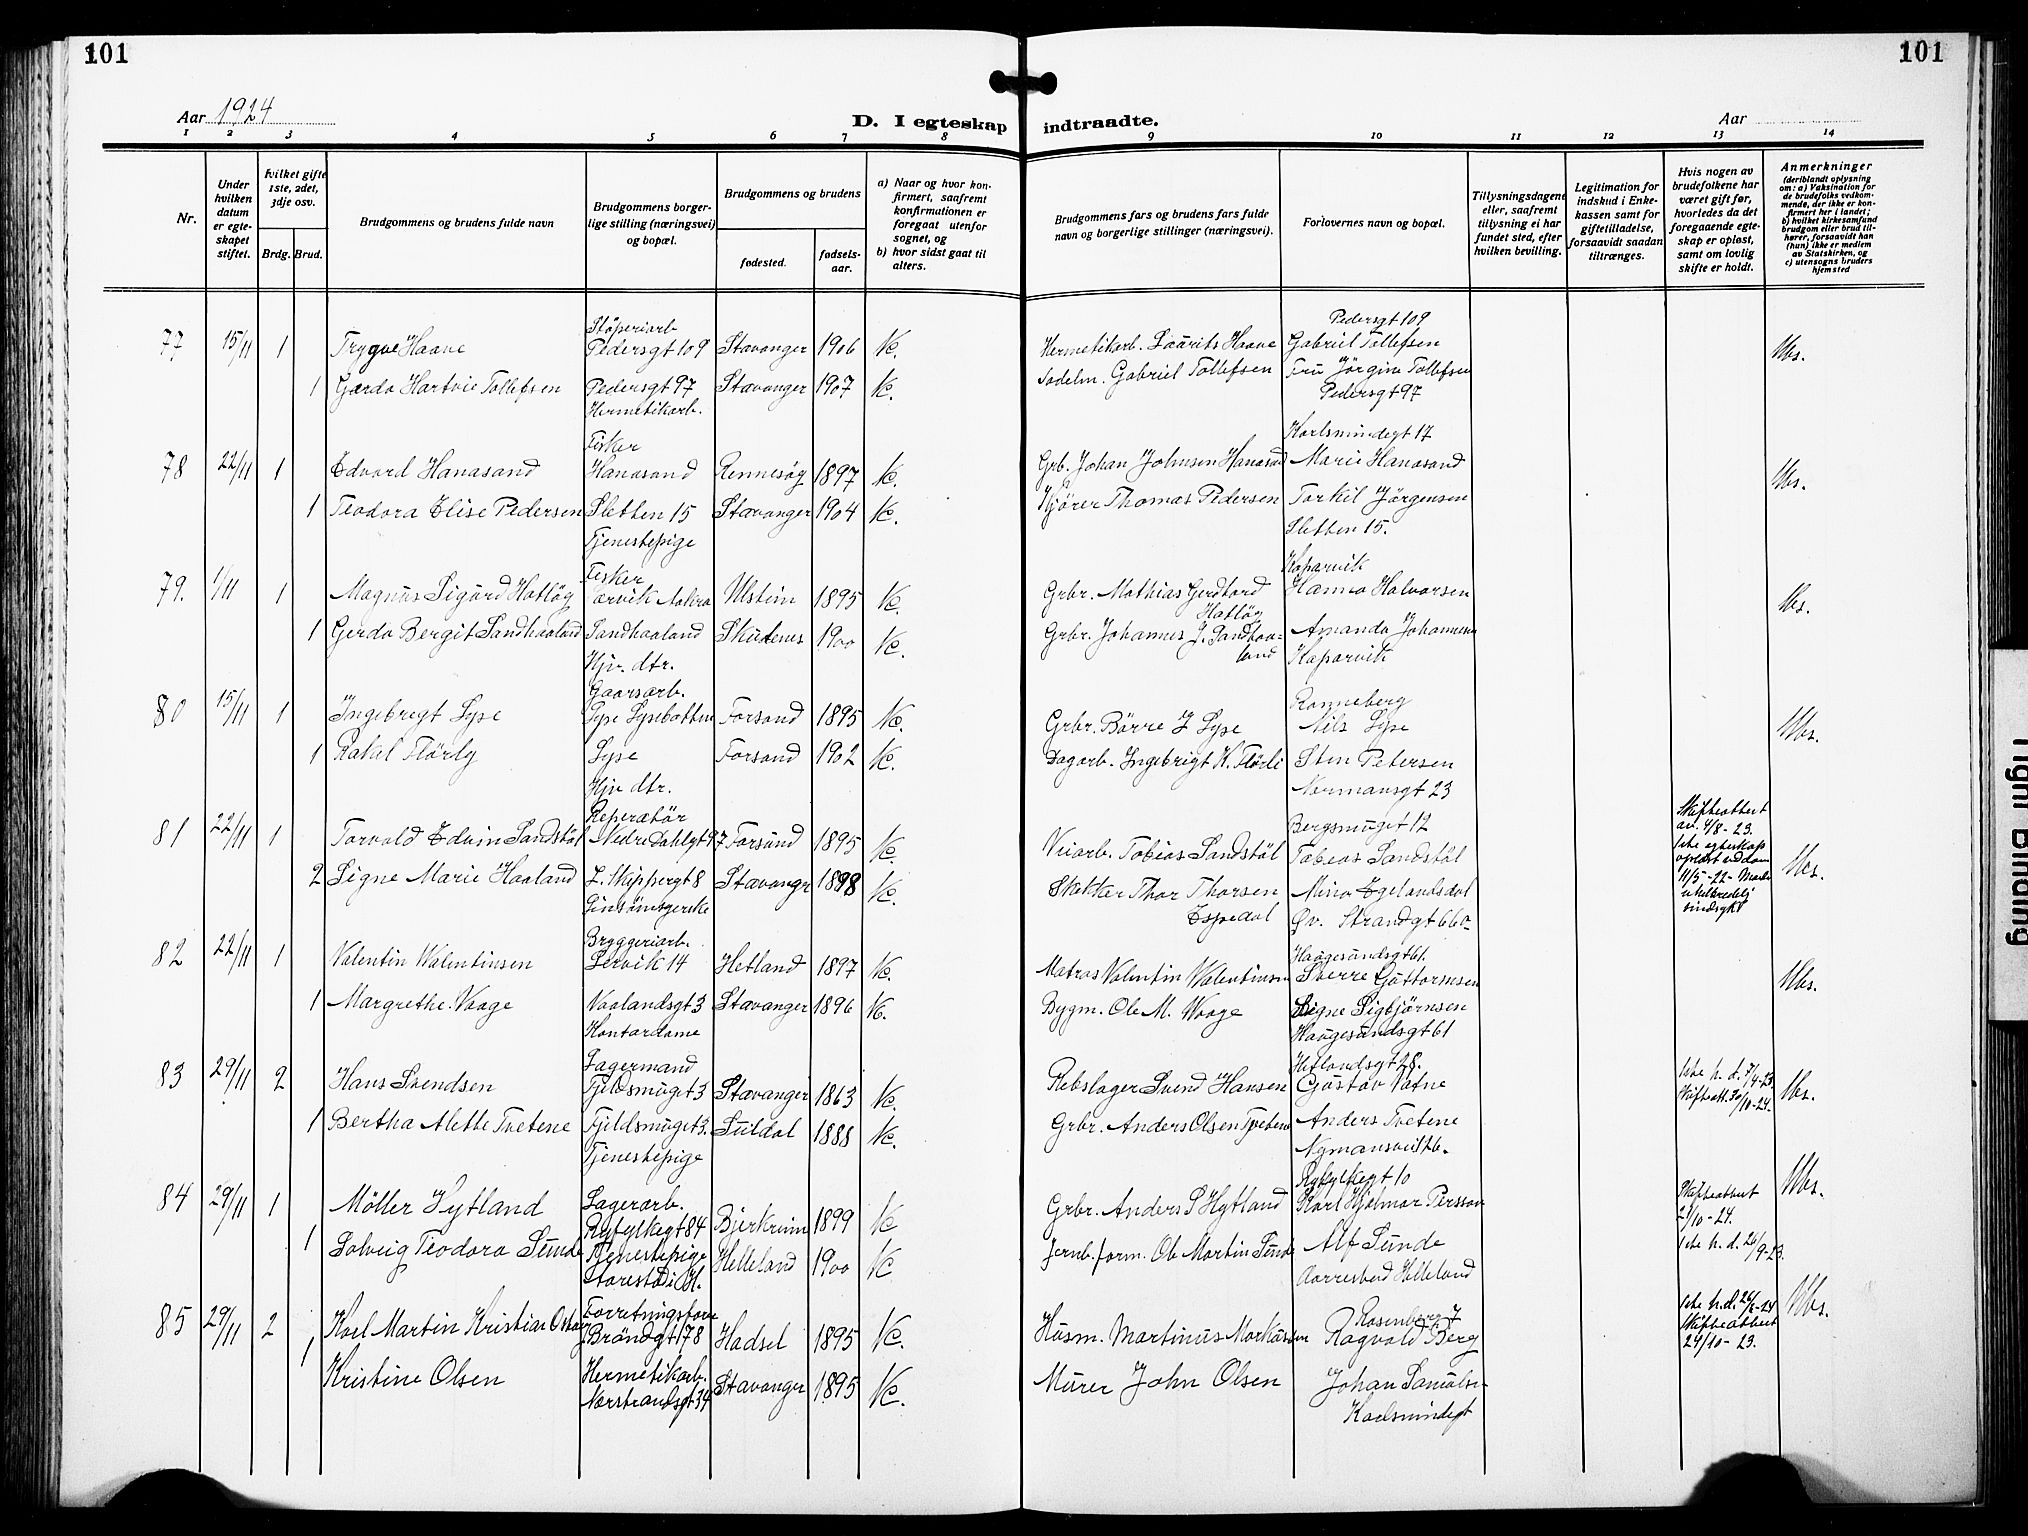 101
101
Aar 1924
D. I egteskap indtraadte.
Aar
1 2 3 4 5 6 7 8 9 10 11 12 13 14
Nr.
Under hvilken datum er egteskapet stiftet.
hvilket gifte 1ste, 2det, 3dje osv.
Brdg. Brud.
Brudgommens og brudens fulde navn
Brudgommens borgerlige stilling (næringsvei) og bopæl.
Brudgommens og brudens
fødested.
fødselsaar.
a) Naar og hvor konfirmert, saafremt konfirmationen er foregaat utenfor sognet, og
b) hvor sidst gaat til alters.
Brudgommens fars og brudens fars fulde navn og borgerlige stillinger (næringsvei).
Forlovernes navn og bopæl.
Tillysningsdagene eller, saafremt tillysning ei har fundet sted, efter hvilken bevilling.
Legitimation for indskud i Enkekassen samt for giftetilladelse, forsaavidt saadan tiltrænges.
Hvis nogen av brudefolkene har været gift før, hvorledes da det foregaaende egteskap er opløst, samt om lovlig skifte er holdt.
Anmerkninger
(deriblandt oplysning om: a) Vaksination for de brudefolks vedkommende, der ikke er konfirmert her i landet;
b) hvilket kirkesamfund brudgom eller brud tilhører, forsaavidt han (hun) ikke er medlem av Statskirken, og
c) utensogns bruders hjemsted
Støperiarb. Pedersgt 109
77 15/11 1 Trygve Haave Pedersgt 109 Stavanger 1906 K. Hermetikarb. Laurits Haave Gabriel Tollefsen
1 Gærda Hartvie Tollefsen Pedersgt 97 Stavanger 1907 K. Sadelm. Gabriel Tollefsen Fru Jörgine Tollefsen
Hermetikarb. Pedersgt 97
Fisker Karlsmindegt 17
78 22/11 1 Edvard Hanasand Hanasand Rennesøy 1897 K. Grb. Johan Johnsen Hanasand Marie Hanasand
1 Teodora Elise Pedersen Sletten 15 Stavanger 1904 K. Kjörer Thomas Pedersen Torkil Jörgensen
Tjenestepige Sletten 15.
Fisker Koparvik
79. 1/11 1 Magnus Sigurd Hatløy Særvik Aakra Ulstein 1895 K. Grbr. Mathias Gerdtard Hatløy Hanna Halvorsen
1 Gerda Bergit Sandhaaland Sandhaaland Skutenes 1900 K. Grbr. Johannes J. Sandhaaland Amanda Johannesen
Hjv. dtr. Kaparvik
Gaarsarb. Ranneberg
80 15/11 1 Ingebregt Lyse Lyse Lysebotten Forsand 1895 K. Grbr. Börre I Lyse Nils Lyse
1 Rakel Flörly Lyse Forsand 1902 K. Dagarb. Ingebrigt K. Flörli Sten Petersen
Hjv dtr. Normansgt 23
Reperatör Bergsmuget 12
81 22/11 1 Torvald Edvin Sandstöl Nedre Dahlgt 97 Forsand 1895 K. Veiarb. Tobias Sandstöl Tobias Sandstöl
2 Signe Marie Haaland L. Skippergt 8 Stavanger 1898 K. Stekker Thor Thorsen Espedal Mina Egelandsdal
Linsömsgerske Øv. Strandgt 66a
Skifteattest av. 4/8-23. 1ste egteskap opløst 11/5-22 uhelbredelig sindsykt
Bryggeriarb. Haagesundsgt 61.
82 22/11 1 Valentin Valentinsen Lervik 14 Hetland 1897 K. Matros Valentin Valentinsen Sverre Guttormsen
1 Margrethe Vaage Vaalandsgt 3 Stavanger 1896 K. Bygm. Ole M. Vaage Signe Sigbjørnsen
Kontordame Haugesundsgt 61
Lagermand Hetlandsgt 28.
83 29/11 2 Hans Svendsen Fjeldsmuget 3 Stavanger 1863 K. Rebslager Svend Hansen Gustav Vatne
1 Bertha Alette Tvetene Fjeldsmuget 3. Suldal 1888 K. Grbr. Anders Olsen Tvetene Anders Tvetene
Tjenestepige Nymansveit 16.
1ste h. d. 7/4-23. Skifteatt. 30/10-24.
Lagerarb. Ryfylkegt 10
84 29/11 1 Møller Hytland Ryfylkegt 84 Bjerkreim 1899 K Grbr. Anders S Hytland Karl Hjalmar Persson
1 Solveig Teodora Sunde Tjenestepige Helleland 1900 K Jernb. form. Ole Martin Sunde Alf Sunde
Aarrestad Helleland
Skifteattest 21/10-24. 1ste h. d. 26/9-23.
Rosenberg 7
85 29/11 2 Karl Martin Kristian Forretningsfører Brøndgt 178 Hadsel 1895 K. Husm. Martinus Markussen Ragvald Berg
1 Kristine Olsen Hermetikarb. Nærstrandsgt 34 Stavanger 1895 K. Murer John Olsen Johan Samuelsen
Karlsmindegt
1ste h.d. 24/6-24 Skifteattest 24/10-23.
Right Binding